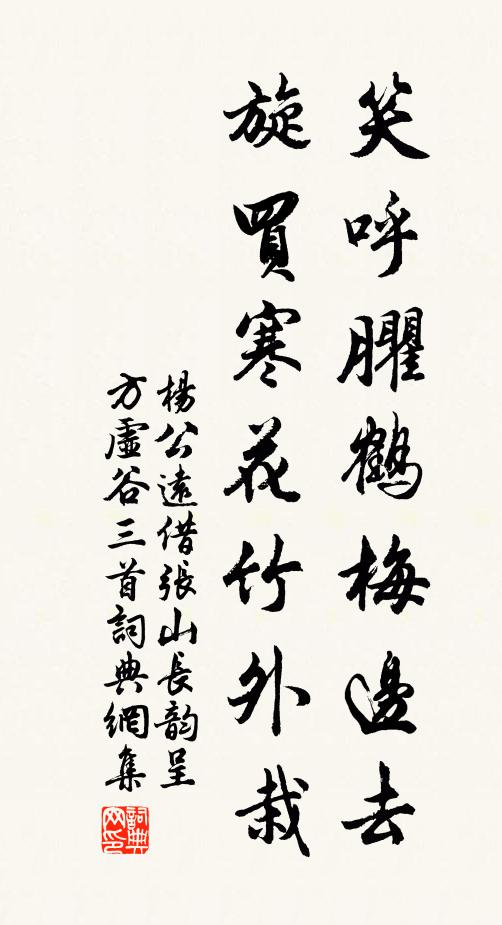 笑呼臞鶴梅邊去
旋買寒花竹外栽
楊公遠借張山長韵呈
方虛谷三首詞典網集
詞典
网印